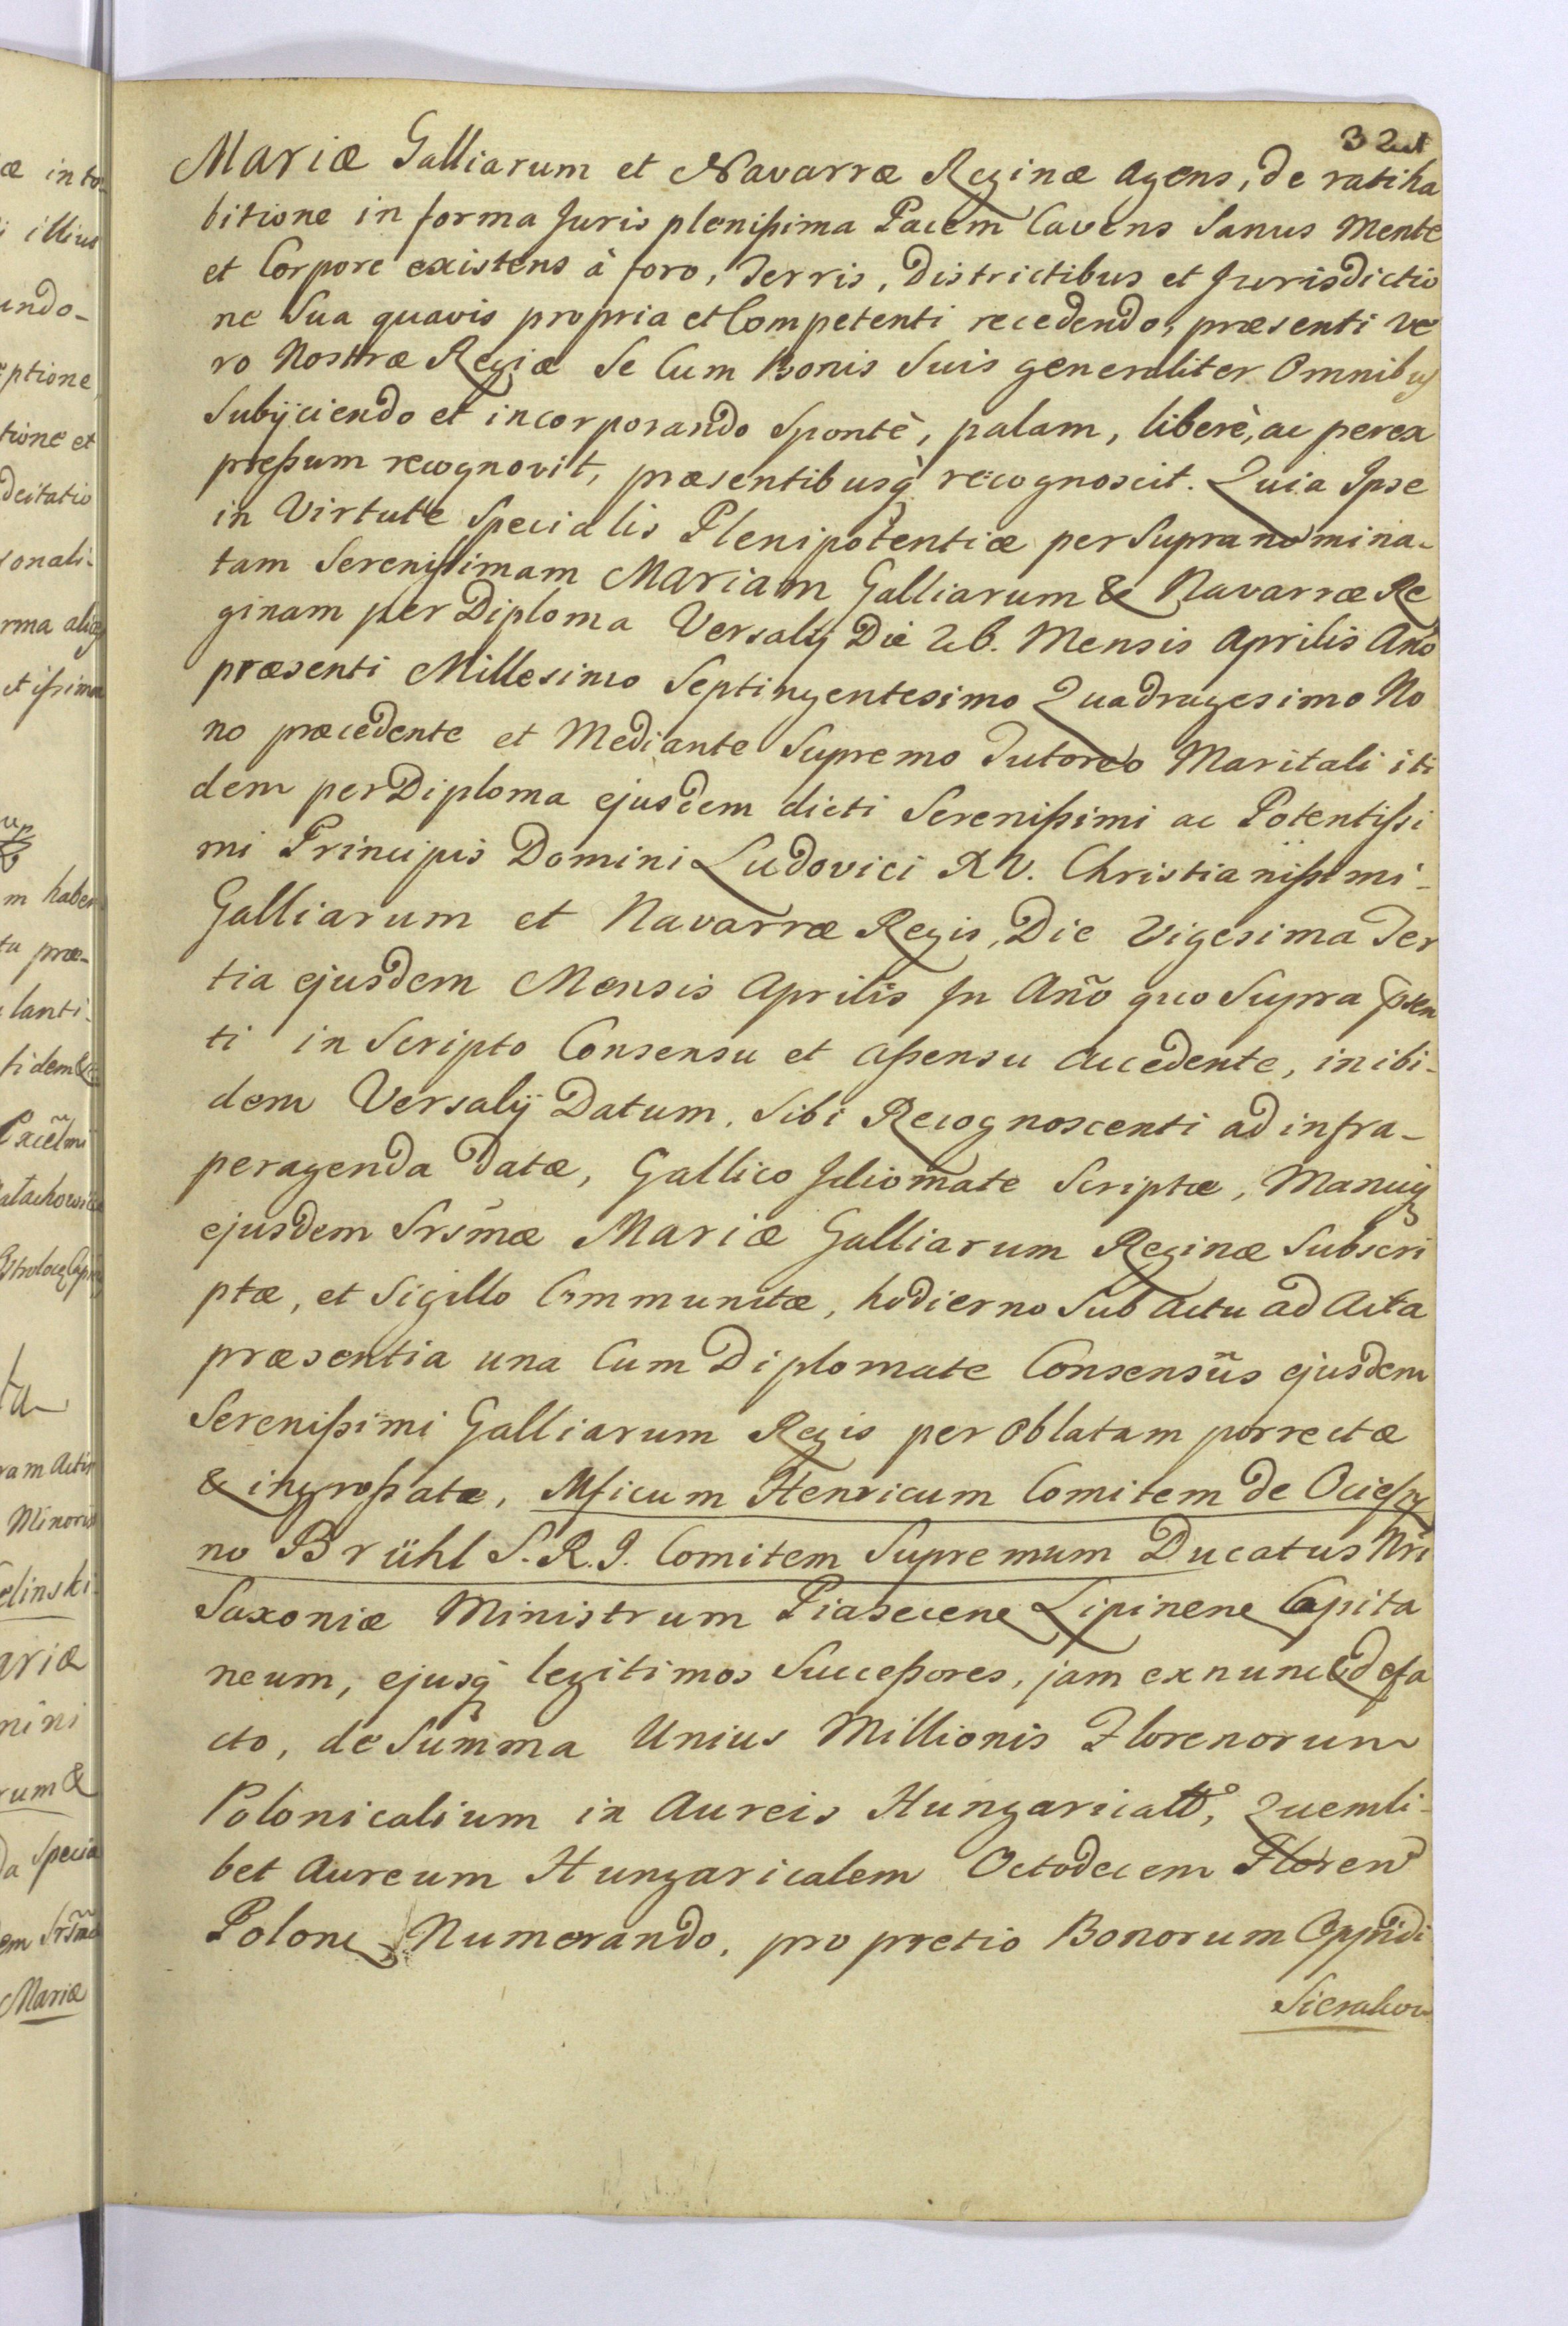 Mariæ Galliarum et Navarræ Reginæ Agens, de ratiha
bitione in forma Juris plenißima Pacem Cavens Sanus Mente
et Corpore existens à foro, Terris, Districtibus et Jurisdictio
ne Sua quavis propria et Competenti recedendo, præsenti ve
ro Nostræ Regiæ Se Cum Bonis Suis generaliter Omnibus
Subijciendo et incorporando Spontè, palam, liberè, ac perex
preßum recognovit, præsentibusq̀ recognoscit. Quia Ipse
in Virtute Specialis Plenipotentiæ per Supra nomina-
tam Serenißimam Mariam Galliarum & Navarræ Re
ginam per Diploma Versalij Die 26. Mensis Aprilis Año
præsenti Millesimo Septingentesimo Quadragesimo No
no præcedente et Mediante Supremo Tutoreo Maritali iti
dem per Diploma ejusdem dicti Serenißimi ac Potentißi
mi Principis Domini Ludovici XV. Christianißimi-
Galliarum et Navarræ Regis, Die Vigesima Ter
tia ejusdem Mensis Aprilis In Año quo Supra Psen
ti in Scripto Consensu et aßensu accedente, inibi-
dem Versalij Datum, Sibi Recognoscenti ad infra-
peragenda datæ, Gallico Idiomate Scriptæ, Manuq̀
ejusdem Srs̃mæ Mariæ Galliarum Reginæ Subscri
ptæ, et Sigillo Communitæ, hodierno Sub Actu ad Acta
præsentia una Cum Diplomate Consensũs ejusdem
Serenißimi Galliarum Regis per Oblatam porrectæ
& ingroßatæ, Mficum Henricum Comitem de Ocieszy
no Brühl S. R. I. Comitem Supremum Ducatus Nri
Saxoniæ Ministrum Piasecene Lipinene Capita
neum, ejusq̀ legitimos Succeßores, jam ex nunc & de fa
cto, de Summa Unius Millionis Florenorum
Polonicalium in Aureis Hungaricalo, Quemli-
bet Aureum Hungaricalem Octodecem Floren
Polone Numerando, pro pretio Bonorum Oppidi
Sierakow
324
æ in to
illius
undo-
eptione
tione et
ditatio
sonali-
rma
m haben
ta præ-
lanti-
fidem &
Excel̃mi
ta
ram Actis
Minoris
elinski
ariæ
mini
rum &
da Specia
em Srs̃mæ
Mariæ